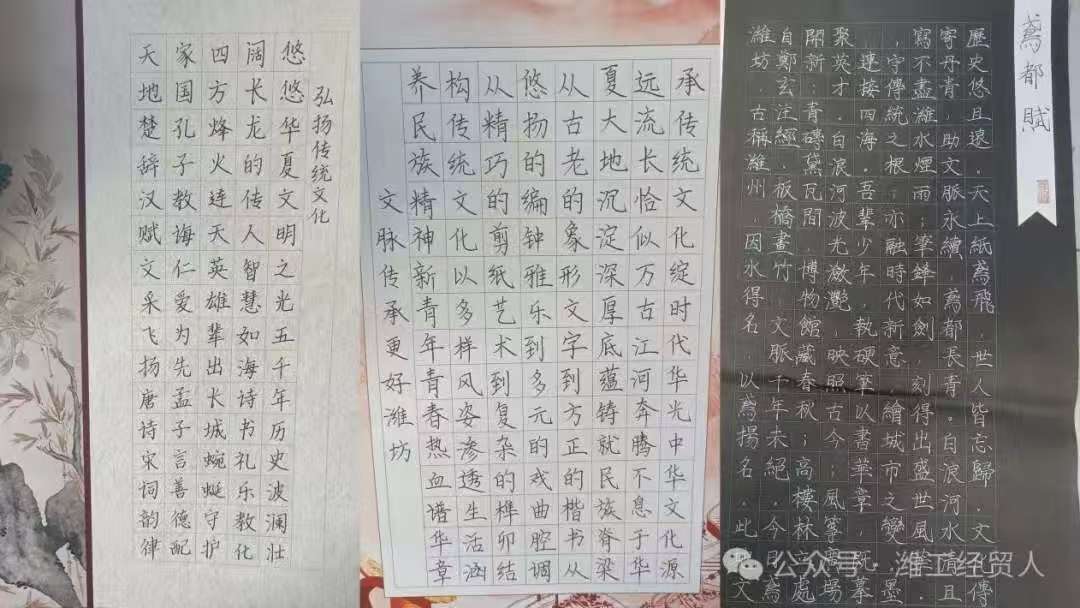 弘扬传统文化
悠悠华夏文明之光五千年历史波澜壮
阔长龙的传人智慧如海诗书礼乐教化
四方烽火连天英雄辈出长城蜿蜒守护
家国孔子教诲仁爱为先孟子言善德配
天地楚辞汉赋文采飞扬唐诗宋词韵律
承传统文化绽时代华光中华文化源
远流长恰似万古江河奔腾不息于华
夏大地沉淀深厚底蕴铸就民族脊梁
从古老的象形文字到方正的楷书从
悠扬的编钟雅乐到多元的戏曲腔调
从精巧的剪纸艺术到复杂的榫卯结
构传统文化以多样风姿渗透生活涵
养民族精神新青年青春热血谱华章
文脉传承更好潍坊
鳶都賦
歷史悠且遠，天上紙鳶飛，世人皆忘歸。文化傳
寄丹青，助文脈永續，鳶都長青。白浪河水清且
寫不盡濰水煙雨；筆鋒如劍，刻得出盛世風
，守傳統之根，亦融時代新意。繪城市之變，墨
連接四海。吾輩少年，執硬筆以書華章，既
聚英才。白浪河波光瀲灩，映照古今；風箏廣場
開新；青磚黛瓦間，博物館藏春秋；高樓林立處
自鄭玄注經，板橋畫竹，文脈千年未絕。今日鳶
濰坊古稱濰州，因水得名，以鳶揚名。此 文
公众号·潍工经贸人